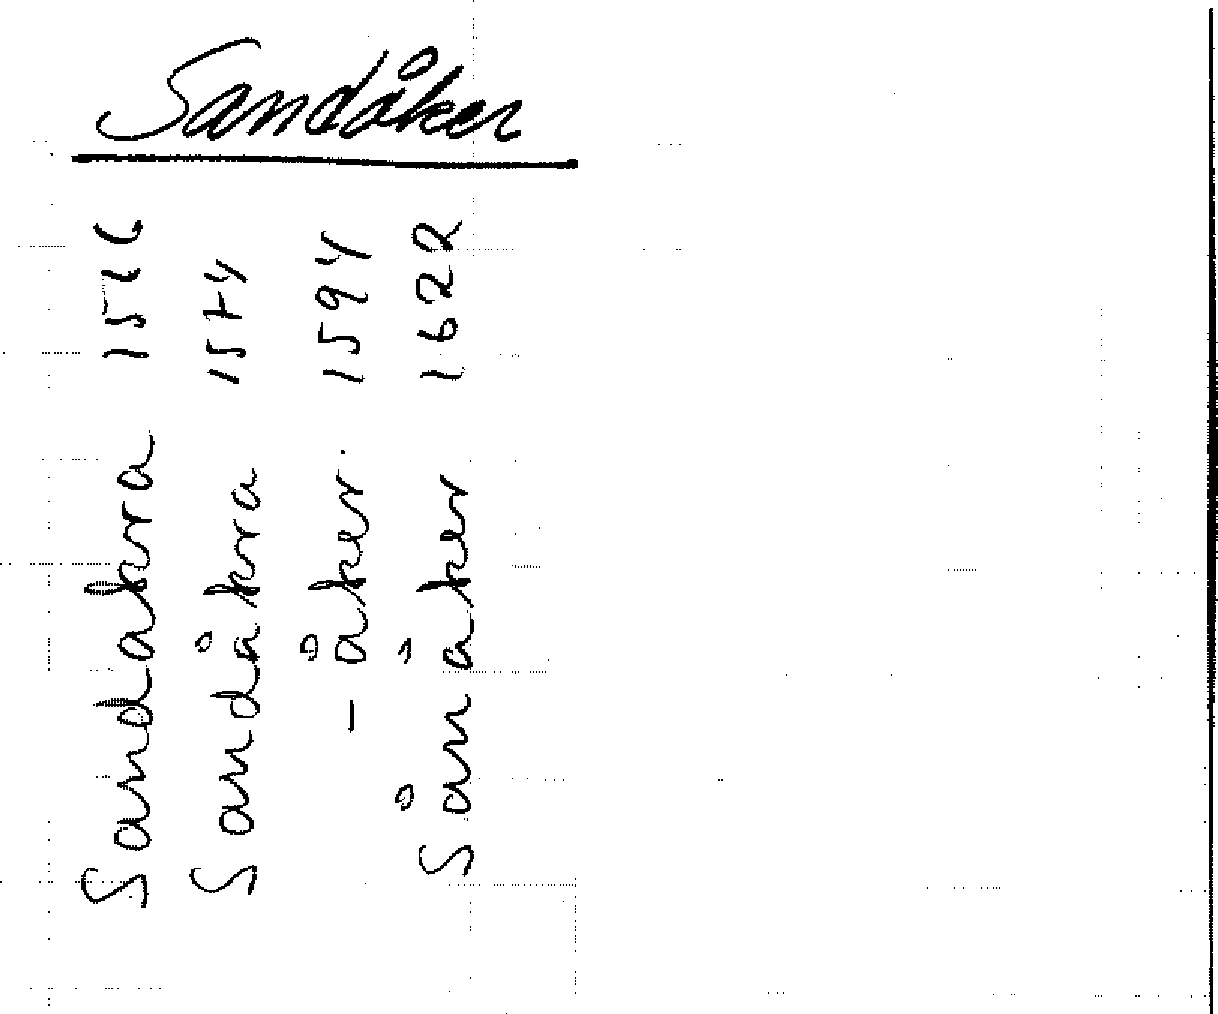 Sandåker
Sandakra 1516
Sandåkra 1574
- åker. 1594
Sånåker 1622